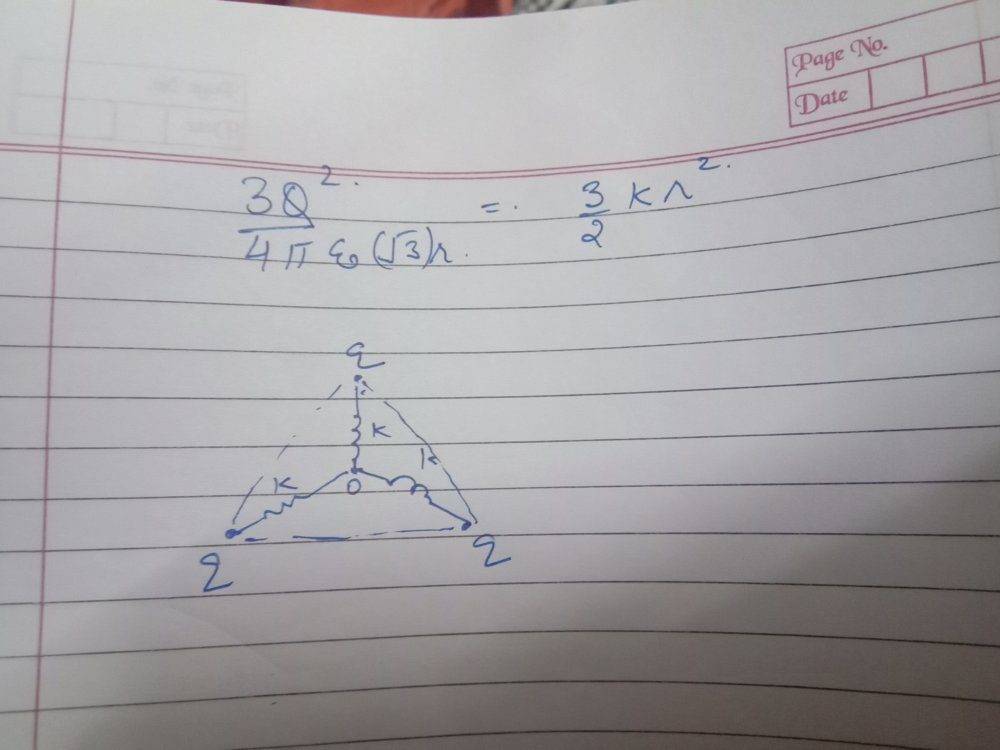 Page No.
Date
3Q². / 4πε₀(√3)r. =. 3/2 kr².
q
k
k
k
O
q
q